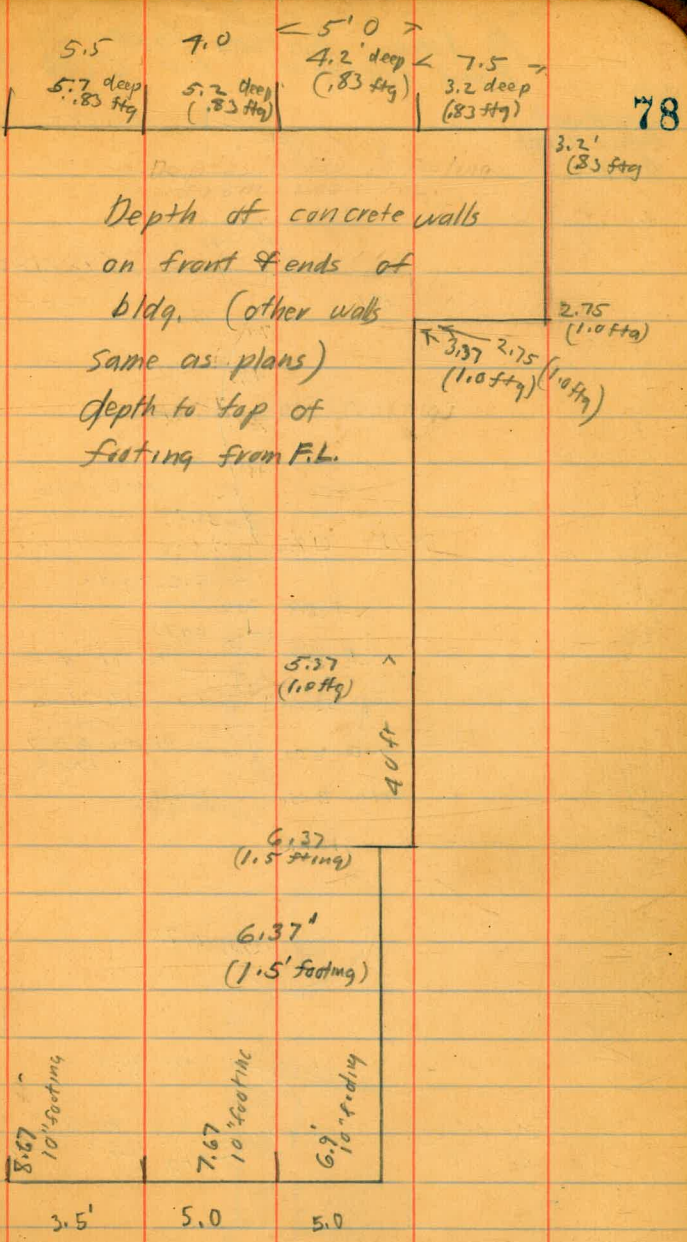 5.5 4.0 < 5'0 >
5.7 deep 5.2 deep 4.2' deep < 7.5 >
.83 ftg (.83 ftg) (.83 ftg) 3.2 deep
(.83 ftg)
78
3.2'
(.83 ftg
Depth of concrete walls
on front & ends of
bldg. (other walls
same as plans)
depth to top of
footing from F.L.
2.75
(1.0 ftg)
3.37 2.75
(1.0 ftg) (1.0 ftg)
5.37
(1.0 ftg)
40 ft
6.37
(1.5 fting)
6.37"
(1.5' footing)
8.67
10" footing
7.67
10" footing
6.9'
10" footing
3.5' 5.0 5.0